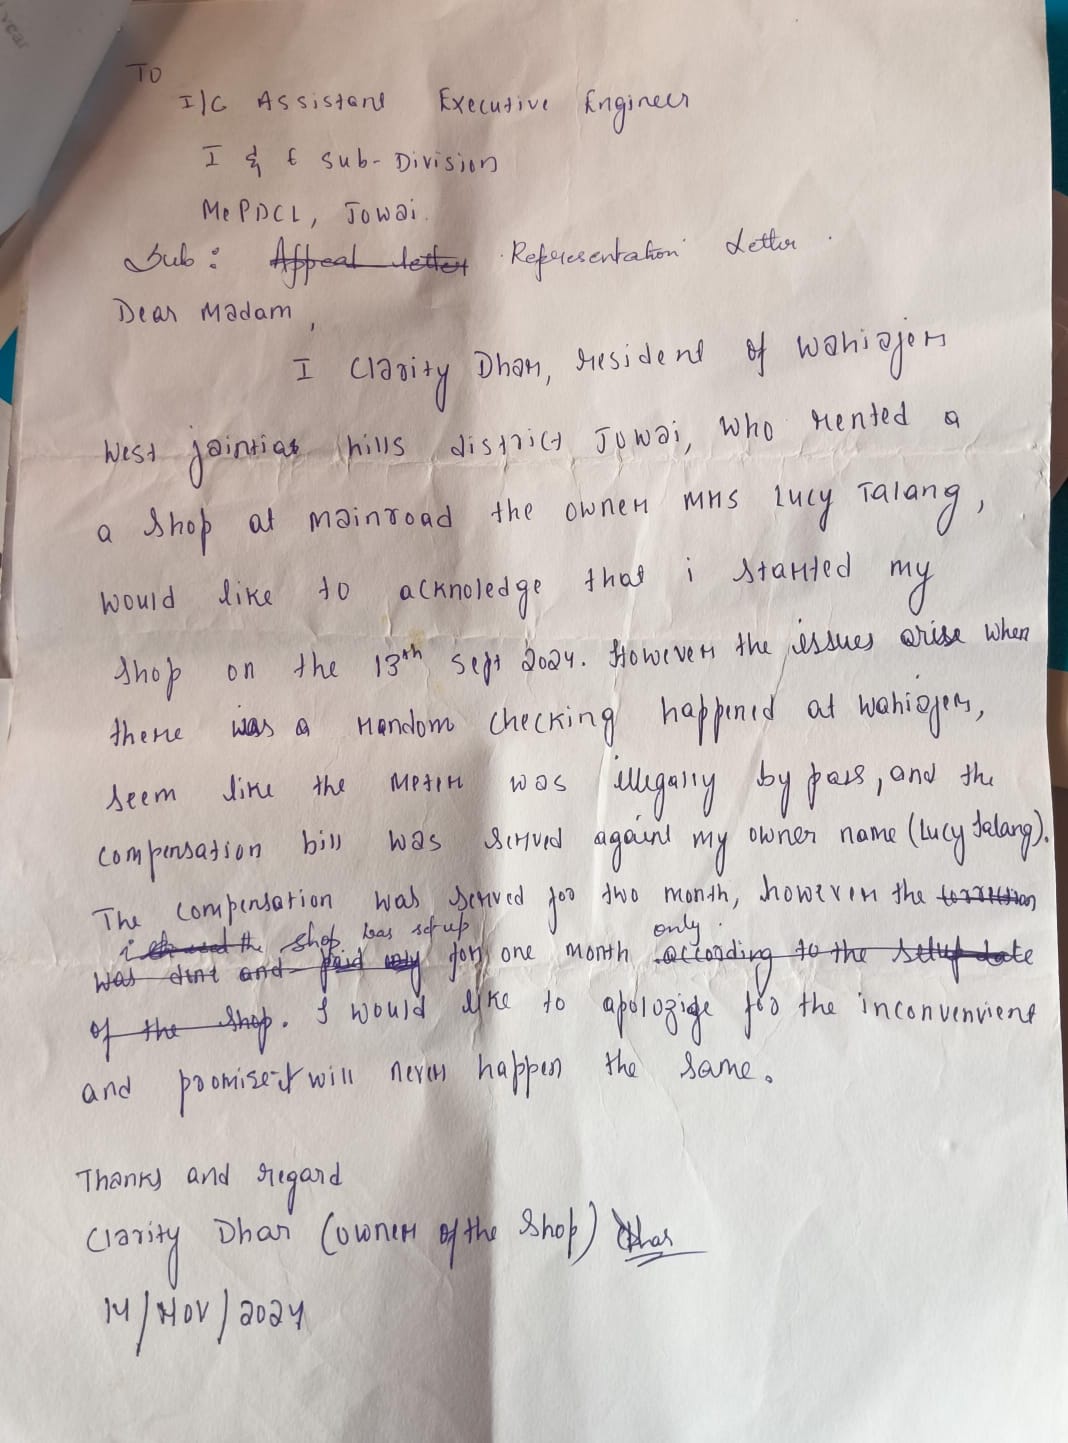 year
To
I/C Assistant Executive Engineer
I & E Sub-Division
MePDCL, Jowai.
Sub: Appeal letter Representation Letter.
Dear Madam,
I Clarity Dhar, resident of wahiajer
West jaintias hills district Jowai, who rented a
a shop at mainroad the owner Mrs Lucy Talang,
would like to acknoledge that i started my
shop on the 13th Sept 2024. However the issues arise when
there was a random checking happened at wahiajer,
seem like the meter was illegally by pass, and the
compensation bill was served against my owner name (Lucy Talang).
The compensation was served for two month, however the correction
i the shop has set up only.
was dont and paid only for one month according to the setup date
of the shop. I would like to apolozige for the inconvenvient
and promise it will never happen the same.
Thanks and regard
Clarity Dhar (owner of the Shop) Dhar
14/Nov/2024